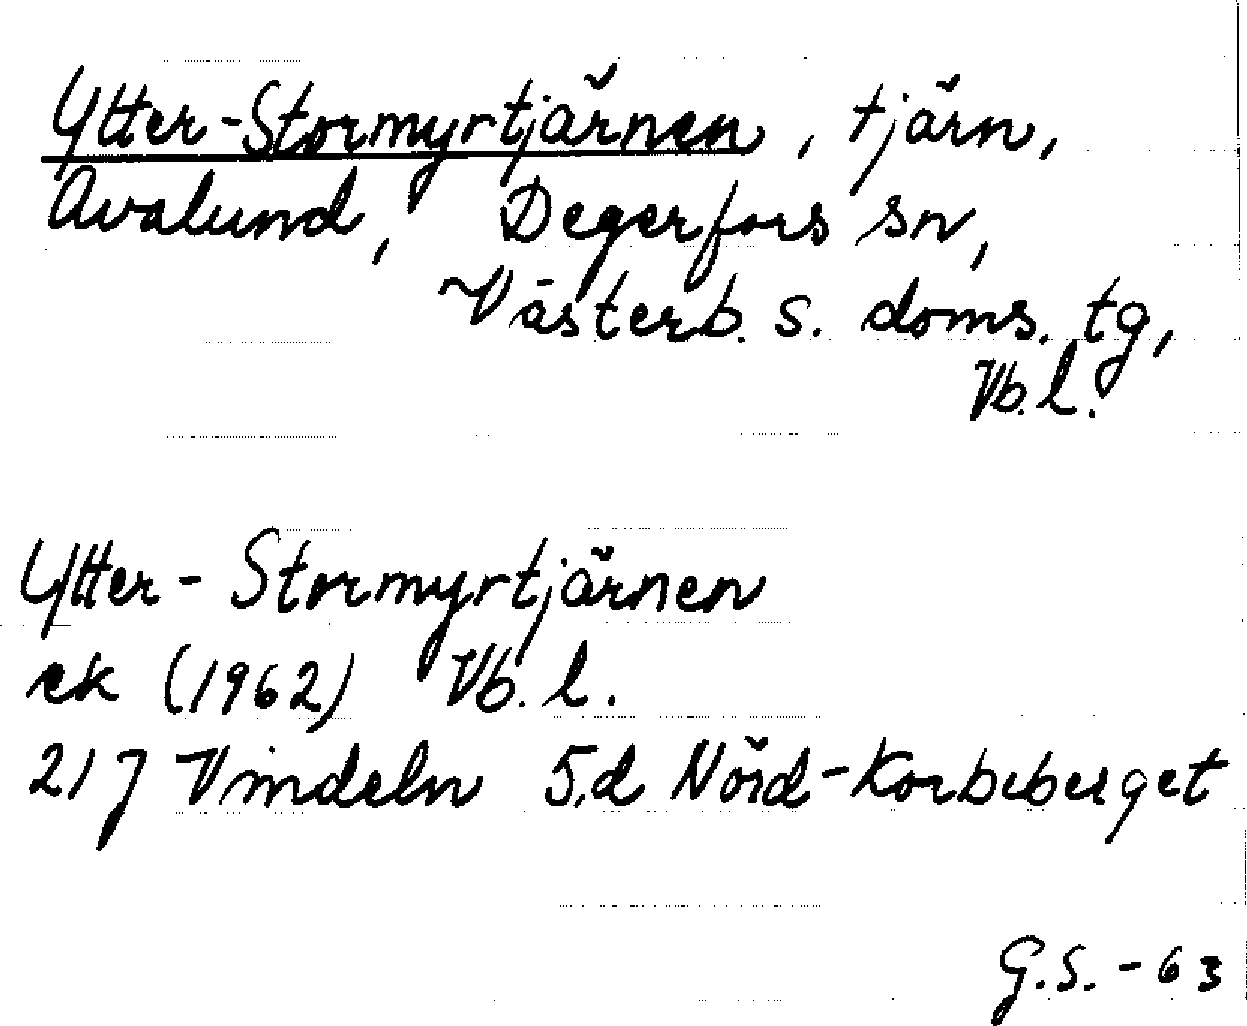 Ytter-Stormyrtjärnen, tjärn,
Avalund, Degerfors sn,
Västerb. s. doms. tg,
Vb.l.
Ytter-Stormyrtjärnen
ek (1962) Vb. l.
21J Vindeln 5,d Nörd-Korbeberget
G.S.-63